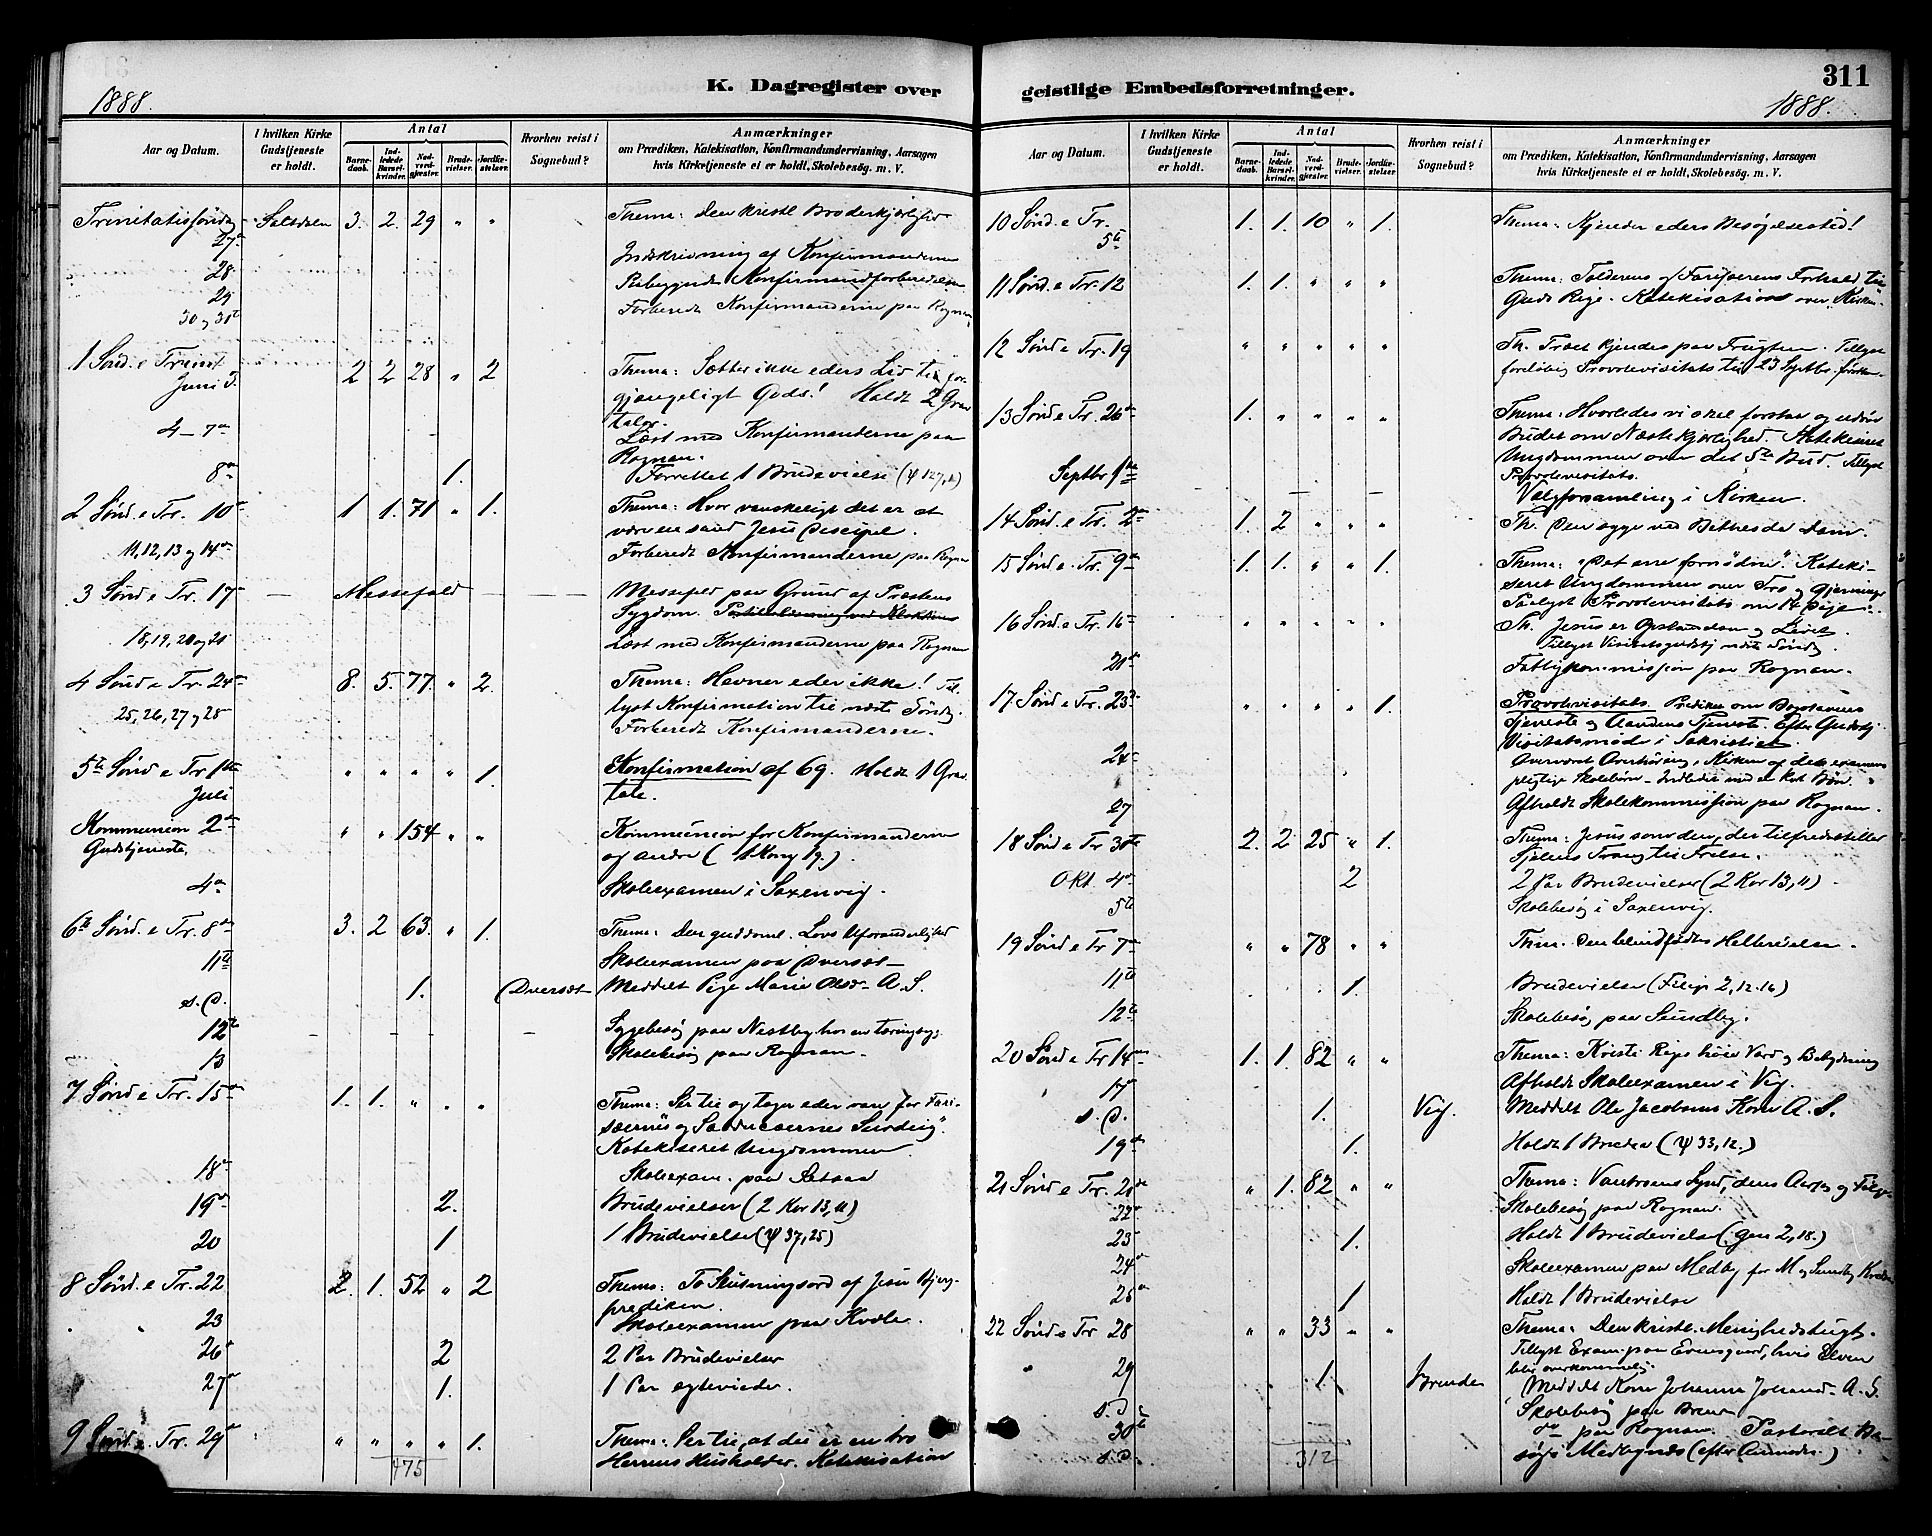 K. Dagregister over
1888.
Aar og Datum.
I hvilken Kirke Gudstjeneste er holdt.
Antal
Barnedaab.
Indledede Barselkvinder.
Nadverdgjester.
Brudevielser.
Jordfæstelser.
Hvorhen reist i Sognebud?
Anmærkninger
om Prædiken, Katekisation, Konfirmandundervisning, Aarsagen
hvis Kirketjeneste ei er holdt, Skolebesøg. m. V.
Trinitatissøndag Saltdalen 3. 2. 29 " " Thema: Den kristl. Broderkjærlighed
27de Indskrivning af Konfirmanderne
28 Paabegyndt Konfirmandforberedelsen
29 Forberedt Konfirmanderne paa Rognan
30 og 31te
1 Sønd. e Trinit 2 2 28 " 2 Thema: Sætter ikke eders Liv til for-
Juni 3. gjængeligt Gods! Holdt 2 Grav
taler.
4 - 7de Læst med Konfirmanderne paa
Rognan.
8de 1. Forrettet 1 Brudevielse (ψ 127,1)
2 Sønd. e Tr. 10de 1 1. 71 " 1. Thema: Hvor vanskeligt det er at
være en sand Jesu Discipel.
11, 12, 13 og 14de Forberedt Konfirmanderne paa Rognan
3 Sønd e Tr. 17 — Messefald — — Messefald paa Grund af Præstens
Sygdom.
18, 19, 20 og 21 Læst med Konfirmanderne paa Rognan
4 Sønd e Tr. 24de 8. 5. 77. " 2. Thema: Hevner eder ikke! Til-
25, 26, 27 og 28 lyst Konfirmation til næste Søndag.
Forberedt Konfirmanderne.
5te Sønd e Tr 1ste " " " " 1. Konfirmation af 69. Holdt 1 Grav
Juli tale.
Kommunion 2den " " 154 " " Kommunion for Konfirmanderne
Gudstjeneste. og andre (1 Kong 19.).
4de Skoleexamen i Saxenvig.
6te Sønd. e Tr. 8de 3. 2 63. " 1. Thema: Den guddoml. Lovs Uforanderlighed
11te Skoleexamen paa Dverset
s. D. 1. Dverset Meddelt Pige Marie Olsd. A. S.
12te — — — Sygebesøg paa Nestby hos en tæringssyg.
13 Skolebesøg paa Rognan.
7 Sønd e Tr. 15de 1. 1. " " " Thema: Ser til og tager eder vare for Fari-
sæernes og Sadducæernes Surdeig".
Katekiseret Ungdommen
18de Skoleexam. paa
19de 2. Brudevielser (2 Kor 13,11)
20 1 1 Brudevielse (ψ 37,25)
8 Sønd. e Tr. 22 2. 1. 52 " 2 Thema: To Slutningsord af Jesu Bjerg-
prediken.
23 Skoleexamen paa Kvæle.
26de 2 2 Par Brudevielser
27de 1. 1 Par egtevieder.
9 Sønd. e. Tr. 29de " " " " 1. Thema: Ser til, at du er en tro
Herrens Husholder. Katekisation
475
geistlige Embedsforretninger.
311
1888.
Aar og Datum.
I hvilken Kirke Gudstjeneste er holdt.
Antal
Barnedaab.
Indledede Barselkvinder.
Nadverdgjester.
Brudevielser.
Jordfæstelser.
Hvorhen reist i Sognebud?
Anmærkninger
om Prædiken, Katekisation, Konfirmandundervisning, Aarsagen
hvis Kirketjeneste ei er holdt, Skolebesøg. m. V.
10 Sønd. e Tr. 1. 1. 10 " 1. Thema: Kjender eders Besøgelsestid!
5te
11 Sønd. e Tr. 12 1. 1. " " " Thema: Tolderens og Farisæerens Forhold til
Guds Rige. Katekisation over
12 Sønd e Tr. 19 " " " " " Th. Træet kjendes paa Frugten. Tillyst
foreløbig Provstevisitats til 23 Septbr.
13 Sønd e Tr. 26de 1. " " " " Thema: Hvorledes vi skal forstaa og udøve
Budet om Næstekjærlighed. Katekiseret
Ungdommen over det 5te Bud. Tillyst
Provstevisitats.
Septbr 1ste — — Valgforsamling i Kirken.
14 Sønd. e. Tr. 2den 1. 2 " " " Th. Den syge ved Bethesda Dam.
15 Sønd e. Tr. 9de 1. 1. " " 1. Thema: "Det ene fornødne". Kateki-
seret Ungdommen over Tro og Gjerninger
Paalyst Provstevisitats om 14 Dage.
16 Sønd e Tr. 16de " " " " " Th. Jesus er Opstandelsen og Livet.
Tillyst Visitatsgudstj næste Søndag.
21de Fattigkommission paa Rognan.
17. Sønd e Tr. 23de " " " " 1. Provstevisitats. Prædiken om Bogstavens
Tjeneste og Aandens Tjeneste. Efter Gudstj.
Visitatsmøde i Sakristiet.
24de Overværet Overhøring i Kirken af de
pligtige Skolebørn – Indledet med en kort Bøn.
27 Afholdt Skolekommission paa Rognan.
18 Sønd e Tr 30te 2. 2 25 " 1. Thema: Jesus som den, der tilfredsstiller
Sjælens Trang til Frelse.
Okt. 4de 2 2 Par Brudevielser (2 Kor 13,11).
5te Skolebesøg i Saxenvig.
19 Sønd e Tr 7de " " 78 " " Thm. Den blindfødtes Helbredelse.
11te 1. Brudevielse (Filip 2, 12-16)
12te Skolebesøg paa Sundby.
20 Sønd e Tr 14de 1. 1. 82 " " Thema: Kristi Riges høie Værd og Betydning
17 Afholdt Skoleexamen i Vig.
s. D. 1. Vig. Meddelt Ole Jacobsens Kone A. S.
19de 1. Holdt 1 Brudev (ψ 33,12.)
21 Sønd e Tr. 21de " 1. 82 " " Thema: Vantroens Synd, dens Aarsag og Følge
22de Skolebesøg paa Rognan.
23de 1. Holdt 1 Brudevielse (gen 2,18.)
24de Skoleexamen paa Medby for M og Sundby Kreds
25de 1 Holdt 1 Brudevielse
22 Sønd e Tr 28 " " 33 " " Thema: Den kristl. Menighedstugt.
Tillyst Exam. paa Evensgaard, hvis Elven
blir overkommelig.
" 29 1 Brenden Meddelt Kone Johanna Johansd. A. S.
s. D. Skolebesøg paa
30te do paa Rognan. Pastoralt Be-
s. D. søg i Medbynes (efter
312